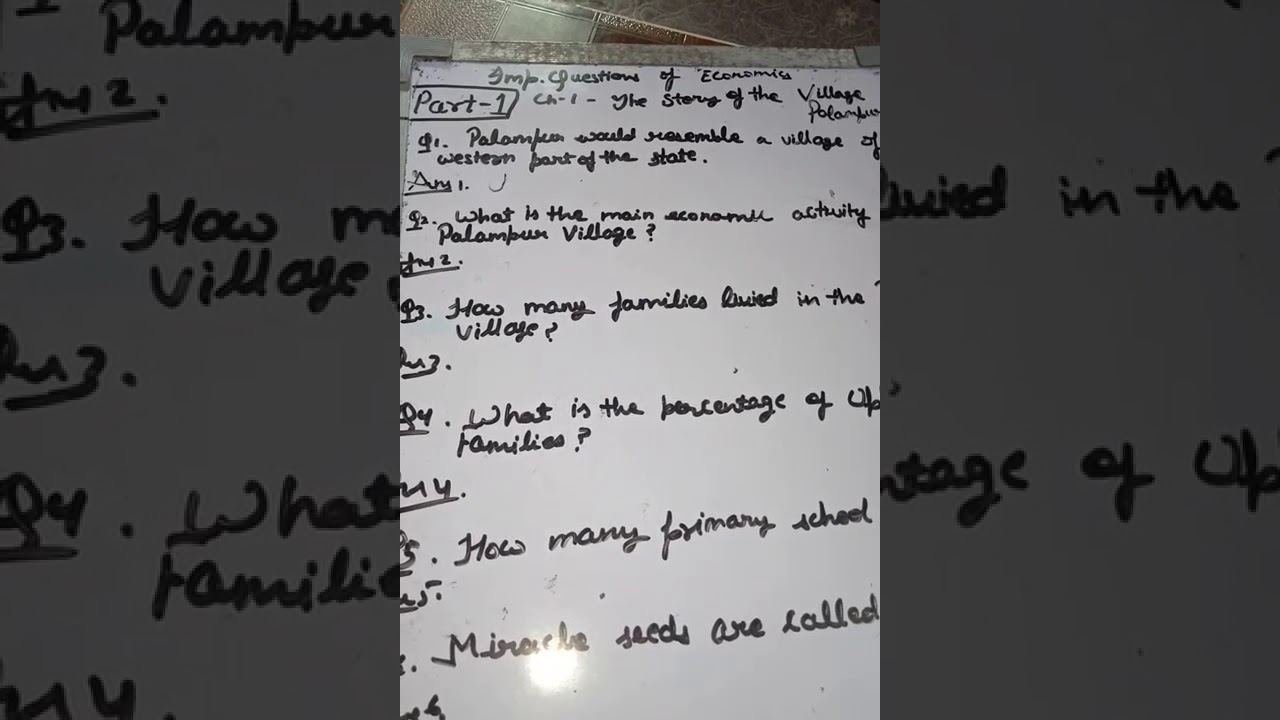 Imp. Questions of Economics
Part-1 Ch-1 - The Story of the Village
Palampur
Q1. Palampur would resemble a village of
western part of the state.
Ans 1.
Q2. What is the main economic activity
Palampur Village?
Ans 2.
Q3. How many families livied in the
Village?
Ans 3.
Q4. What is the percentage of Up
families?
Ans 4.
Q5. How many primary school
Ans 5.
Miracle seeds are called